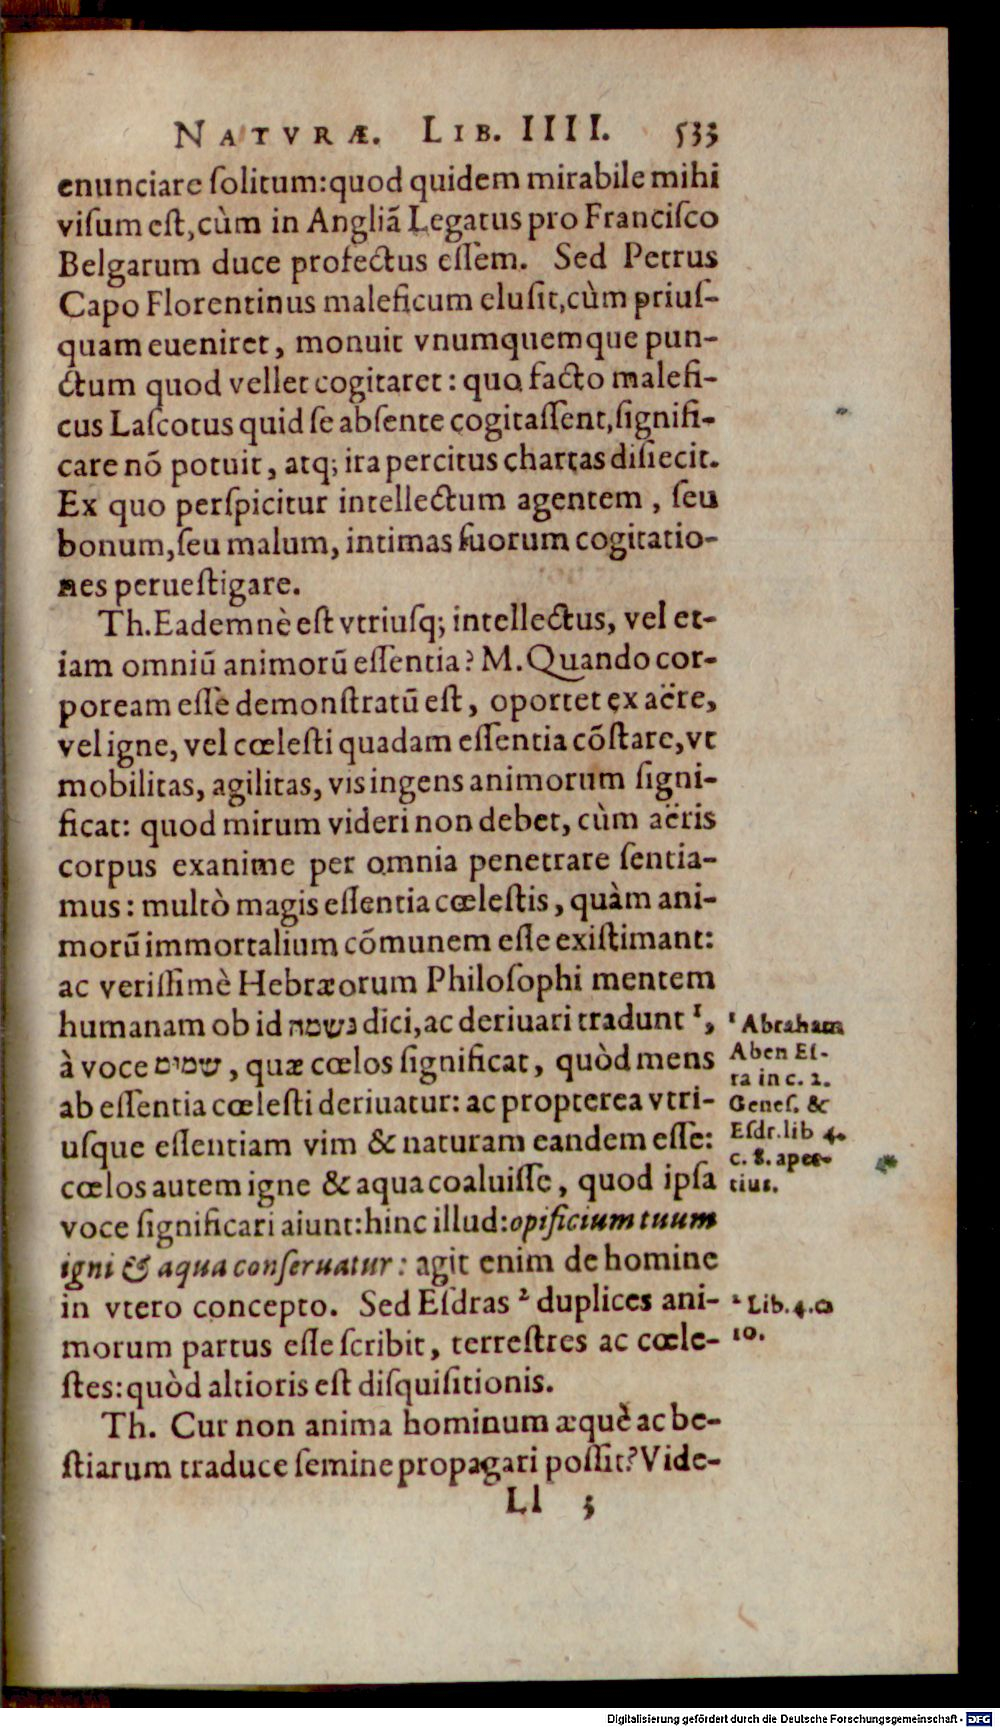 NATVRÆ. LIB. IIII. 533
enunciare ſolitum:quod quidem mirabile mihi
viſum eſt,cùm in Angliã Legatus pro Franciſco
Belgarum duce profectus eſſem. Sed Petrus
Capo Florentinus maleficum eluſit,cùm priuſ-
quam eueniret, monuit vnumquemque pun-
ctum quod vellet cogitaret: quo facto malefi-
cus Laſcotus quid ſe abſente cogitaſſent,ſignifi-
care nõ potuit, atq; ira percitus chartas diſiecit.
Ex quo perſpicitur intellectum agentem, ſeu
bonum,ſeu malum, intimas ſuorum cogitatio-
nes perueſtigare.
Th.Eademnè eſt vtriuſq; intellectus, vel et-
iam omniũ animorũ eſſentia? M.Quando cor-
poream eſſe demonſtratũ eſt, oportet ex aëre,
vel igne, vel cœleſti quadam eſſentia cõſtare,vt
mobilitas, agilitas, vis ingens animorum ſigni-
ficat: quod mirum videri non debet, cùm aëris
corpus exanime per omnia penetrare ſentia-
mus: multò magis eſſentia cœleſtis, quàm ani-
morũ immortalium cõmunem eſſe exiſtimant:
ac veriſſimè Hebræorum Philoſophi mentem
humanam ob id נשמה dici,ac deriuari tradunt ¹,
à voce שמים, quæ cœlos ſignificat, quòd mens
ab eſſentia cœleſti deriuatur: ac propterea vtri-
uſque eſſentiam vim & naturam eandem eſſe:
cœlos autem igne & aqua coaluiſſe, quod ipſa
voce ſignificari aiunt:hinc illud:opificium tuum
igni & aqua conſeruatur: agit enim de homine
in vtero concepto. Sed Eſdras ² duplices ani-
morum partus eſſe ſcribit, terreſtres ac cœle-
ſtes:quòd altioris eſt diſquiſitionis.
Th. Cur non anima hominum æquè ac be-
ſtiarum traduce ſemine propagari poſſit? Vide-
Ll 3
¹ Abraham
Aben Eſ-
ra in c. 2.
Geneſ. &
Eſdr.lib 4.
c. 8. aper-
tius.
² Lib.4.c
10.
Digitalisierung gefördert durch die Deutsche Forschungsgemeinschaft - DFG